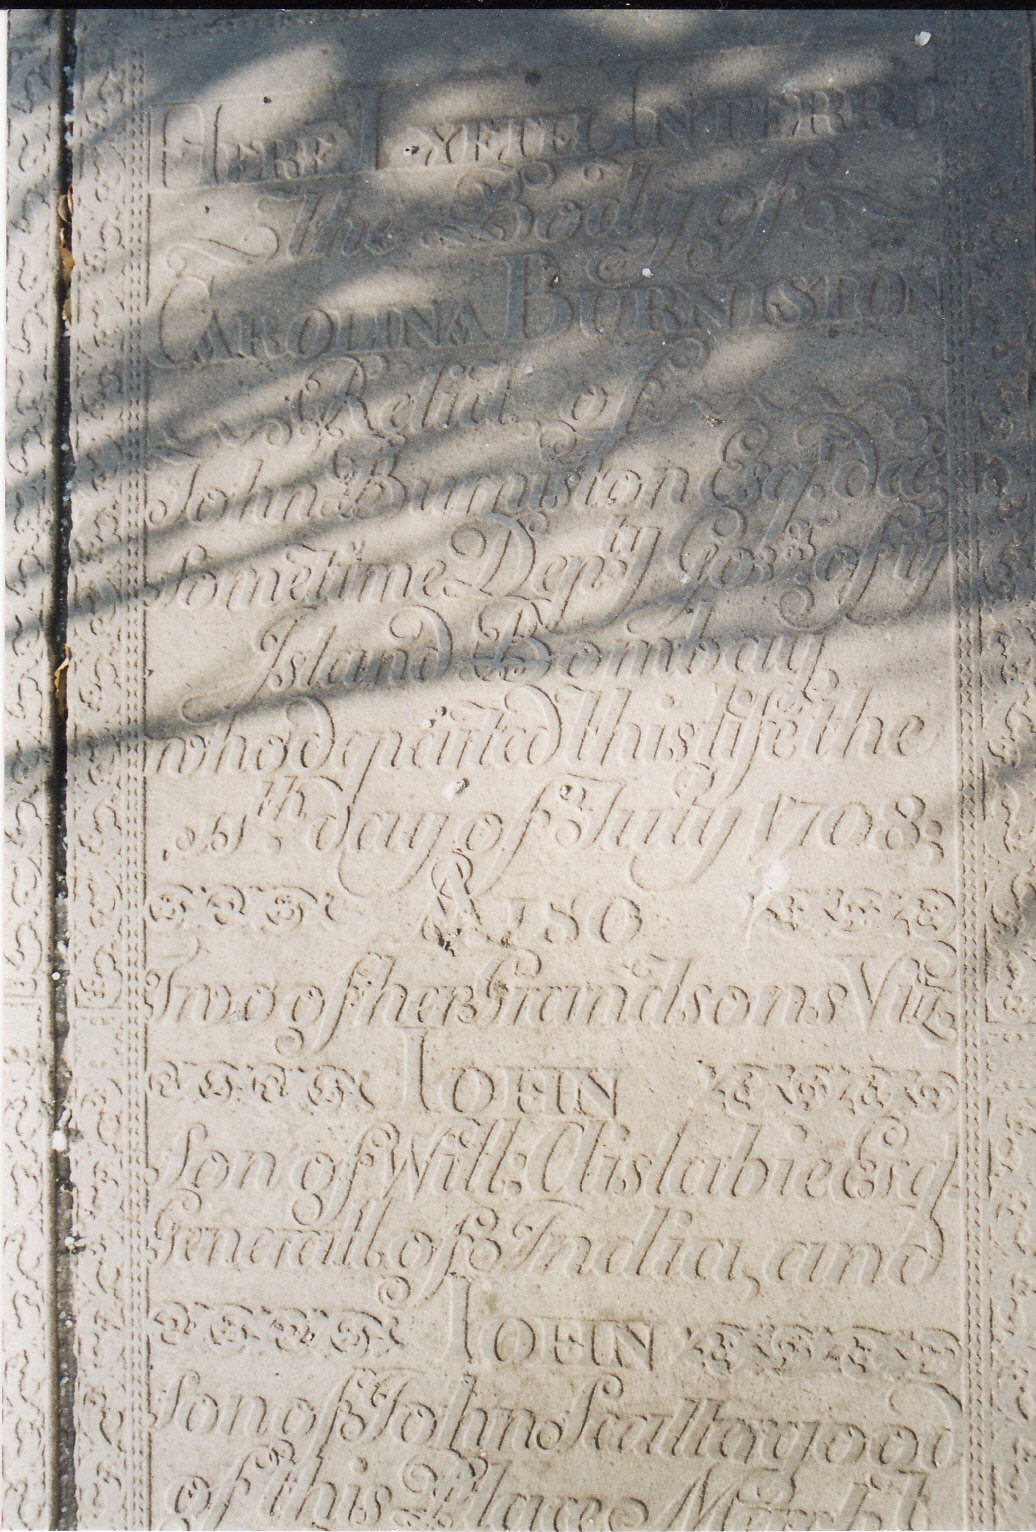 HERE LYETH INTERR'D
The Body of
CAROLINA BURNISTON
Relict of
John Burniston Esq.r dec.d
sometime Dep.ty Gov.r of y.e
Island Bombay,
who departed this life the
11.th day of July 1708;
ALSO
Two of her Grandsons Viz
IOHN
son of Will: Aislabie Esq.
Generall of India, and
IOHN
son of John Scattergood
of this Place March.t